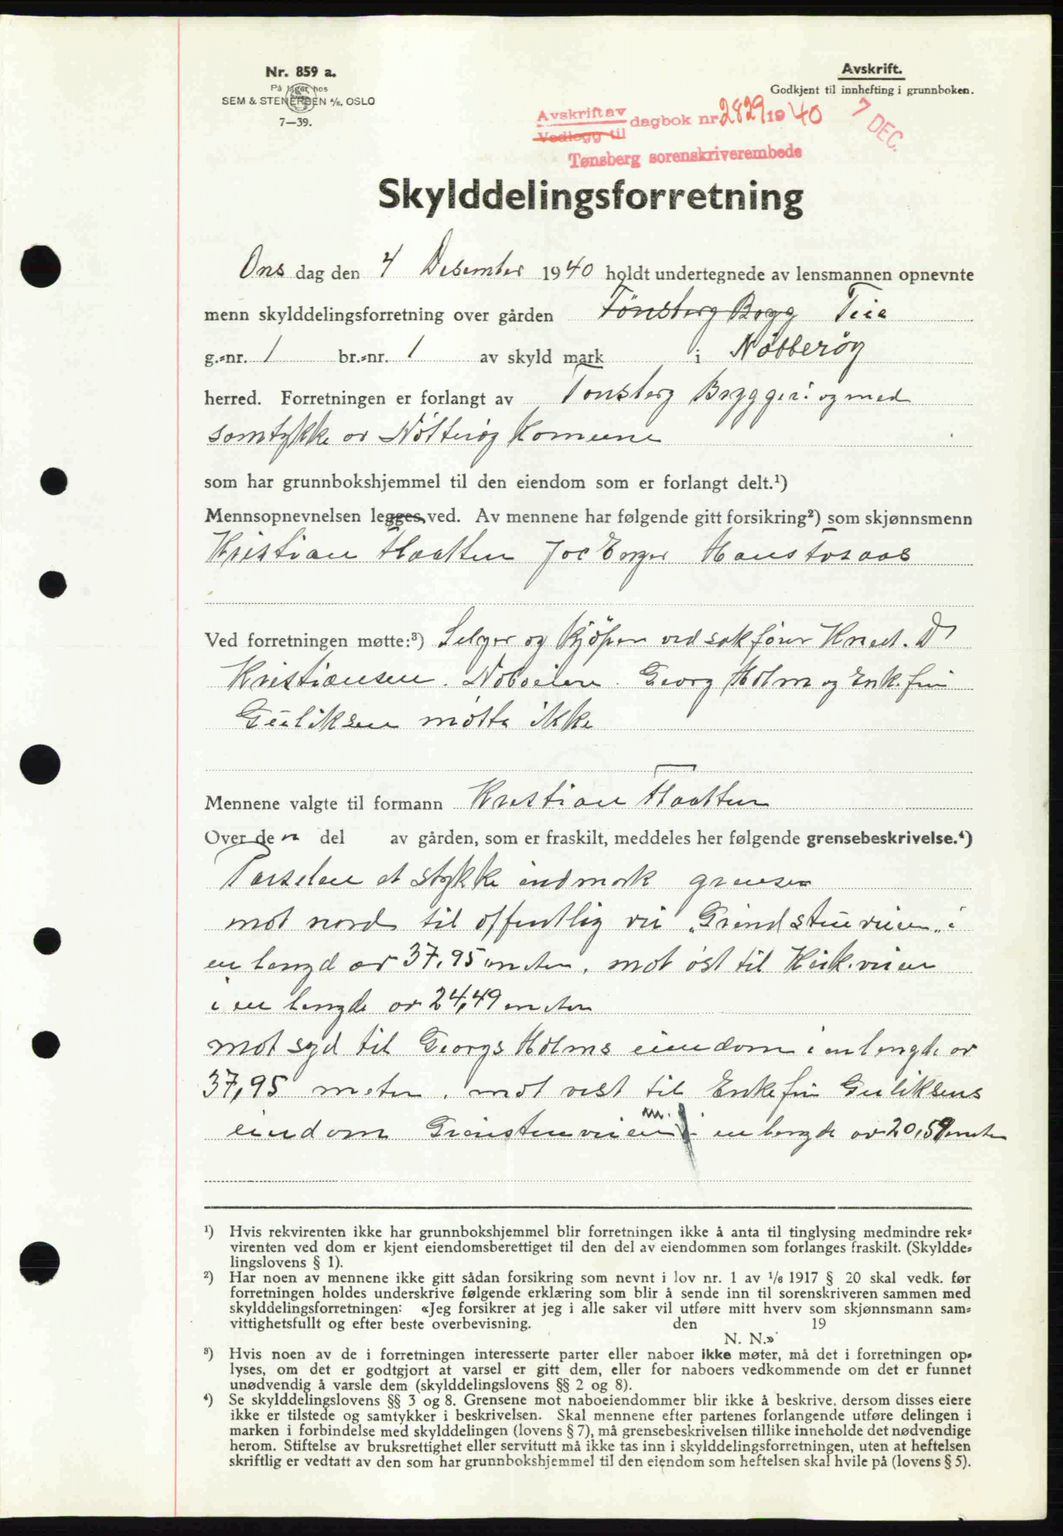 Nr. 859 a.
På lager hos
SEM & STENERSEN A/S, OSLO
7—39.
Avskrift.
Godkjent til innhefting i grunnboken.
Avskrift av
Vedlegg til
dagbok nr 2829 1940
7 DEC.
Tønsberg sorenskriverembede
Skylddelingsforretning
Ons dag den 4 Desember 1940 holdt undertegnede av lensmannen opnevnte
menn skylddelingsforretning over gården Tønsberg Brygg Teie
g.=nr. 1 br.=nr. 1 av skyld mark i Nøtterøy
herred. Forretningen er forlangt av Tønsberg Bryggeri og med
samtykke av Nøtterøy Komune
som har grunnbokshjemmel til den eiendom som er forlangt delt.¹)
Mennsopnevnelsen legges ved. Av mennene har følgende gitt forsikring²) som skjønnsmenn
Kristian Flaatten Hans Tosaas
Ved forretningen møtte:³) Selger og kjøper ved sakfører Knut. D
Kristiansen. Naboeiere. Georg Holm og Enkefru
Guliksen møtte ikke
Mennene valgte til formann Kristian Flaatten
Over den del av gården, som er fraskilt, meddeles her følgende grensebeskrivelse.⁴)
Parselen et stykke indmark grenser
mot nord til offentlig vei „Grindstuveien„ i
en lengd av 37,95 meter, mot øst til Kirkeveien
i en lengde av 24,49 meter
mot syd til Georgs Holms eiendom i en lengde av
37,95 meter, mot vest til Enkefru Guliksens
eiendom i en lengde av 20,59 meter
¹) Hvis rekvirenten ikke har grunnbokshjemmel blir forretningen ikke å anta til tinglysing medmindre rek=
virenten ved dom er kjent eiendomsberettiget til den del av eiendommen som forlanges fraskilt. (Skyldde=
lingslovens § 1).
²) Har noen av mennene ikke gitt sådan forsikring som nevnt i lov nr. 1 av 1/6 1917 § 20 skal vedk. før
forretningen holdes underskrive følgende erklæring som blir å sende inn til sorenskriveren sammen med
skylddelingsforretningen: «Jeg forsikrer at jeg i alle saker vil utføre mitt hverv som skjønnsmann sam=
vittighetsfullt og efter beste overbevisning. den 19
N. N.»
³) Hvis noen av de i forretningen interesserte parter eller naboer ikke møter, må det i forretningen op=
lyses, om det er godtgjort at varsel er gitt dem, eller for naboers vedkommende om det er funnet
unødvendig å varsle dem (skylddelingslovens §§ 2 og 8).
⁴) Se skylddelingslovens §§ 3 og 8. Grensene mot naboeiendommer blir ikke å beskrive, dersom disses eiere
ikke er tilstede og samtykker i beskrivelsen. Skal mennene efter partenes forlangende utføre delingen i
marken i forbindelse med skylddelingen (lovens § 7), må grensebeskrivelsen tillike inneholde det nødvendige
herom. Stiftelse av bruksrettighet eller servitutt må ikke tas inn i skylddelingsforretningen, uten at heftelsen
skriftlig er vedtatt av den som har grunnbokshjemmel til den eiendom som heftelsen skal hvile på (lovens § 5).